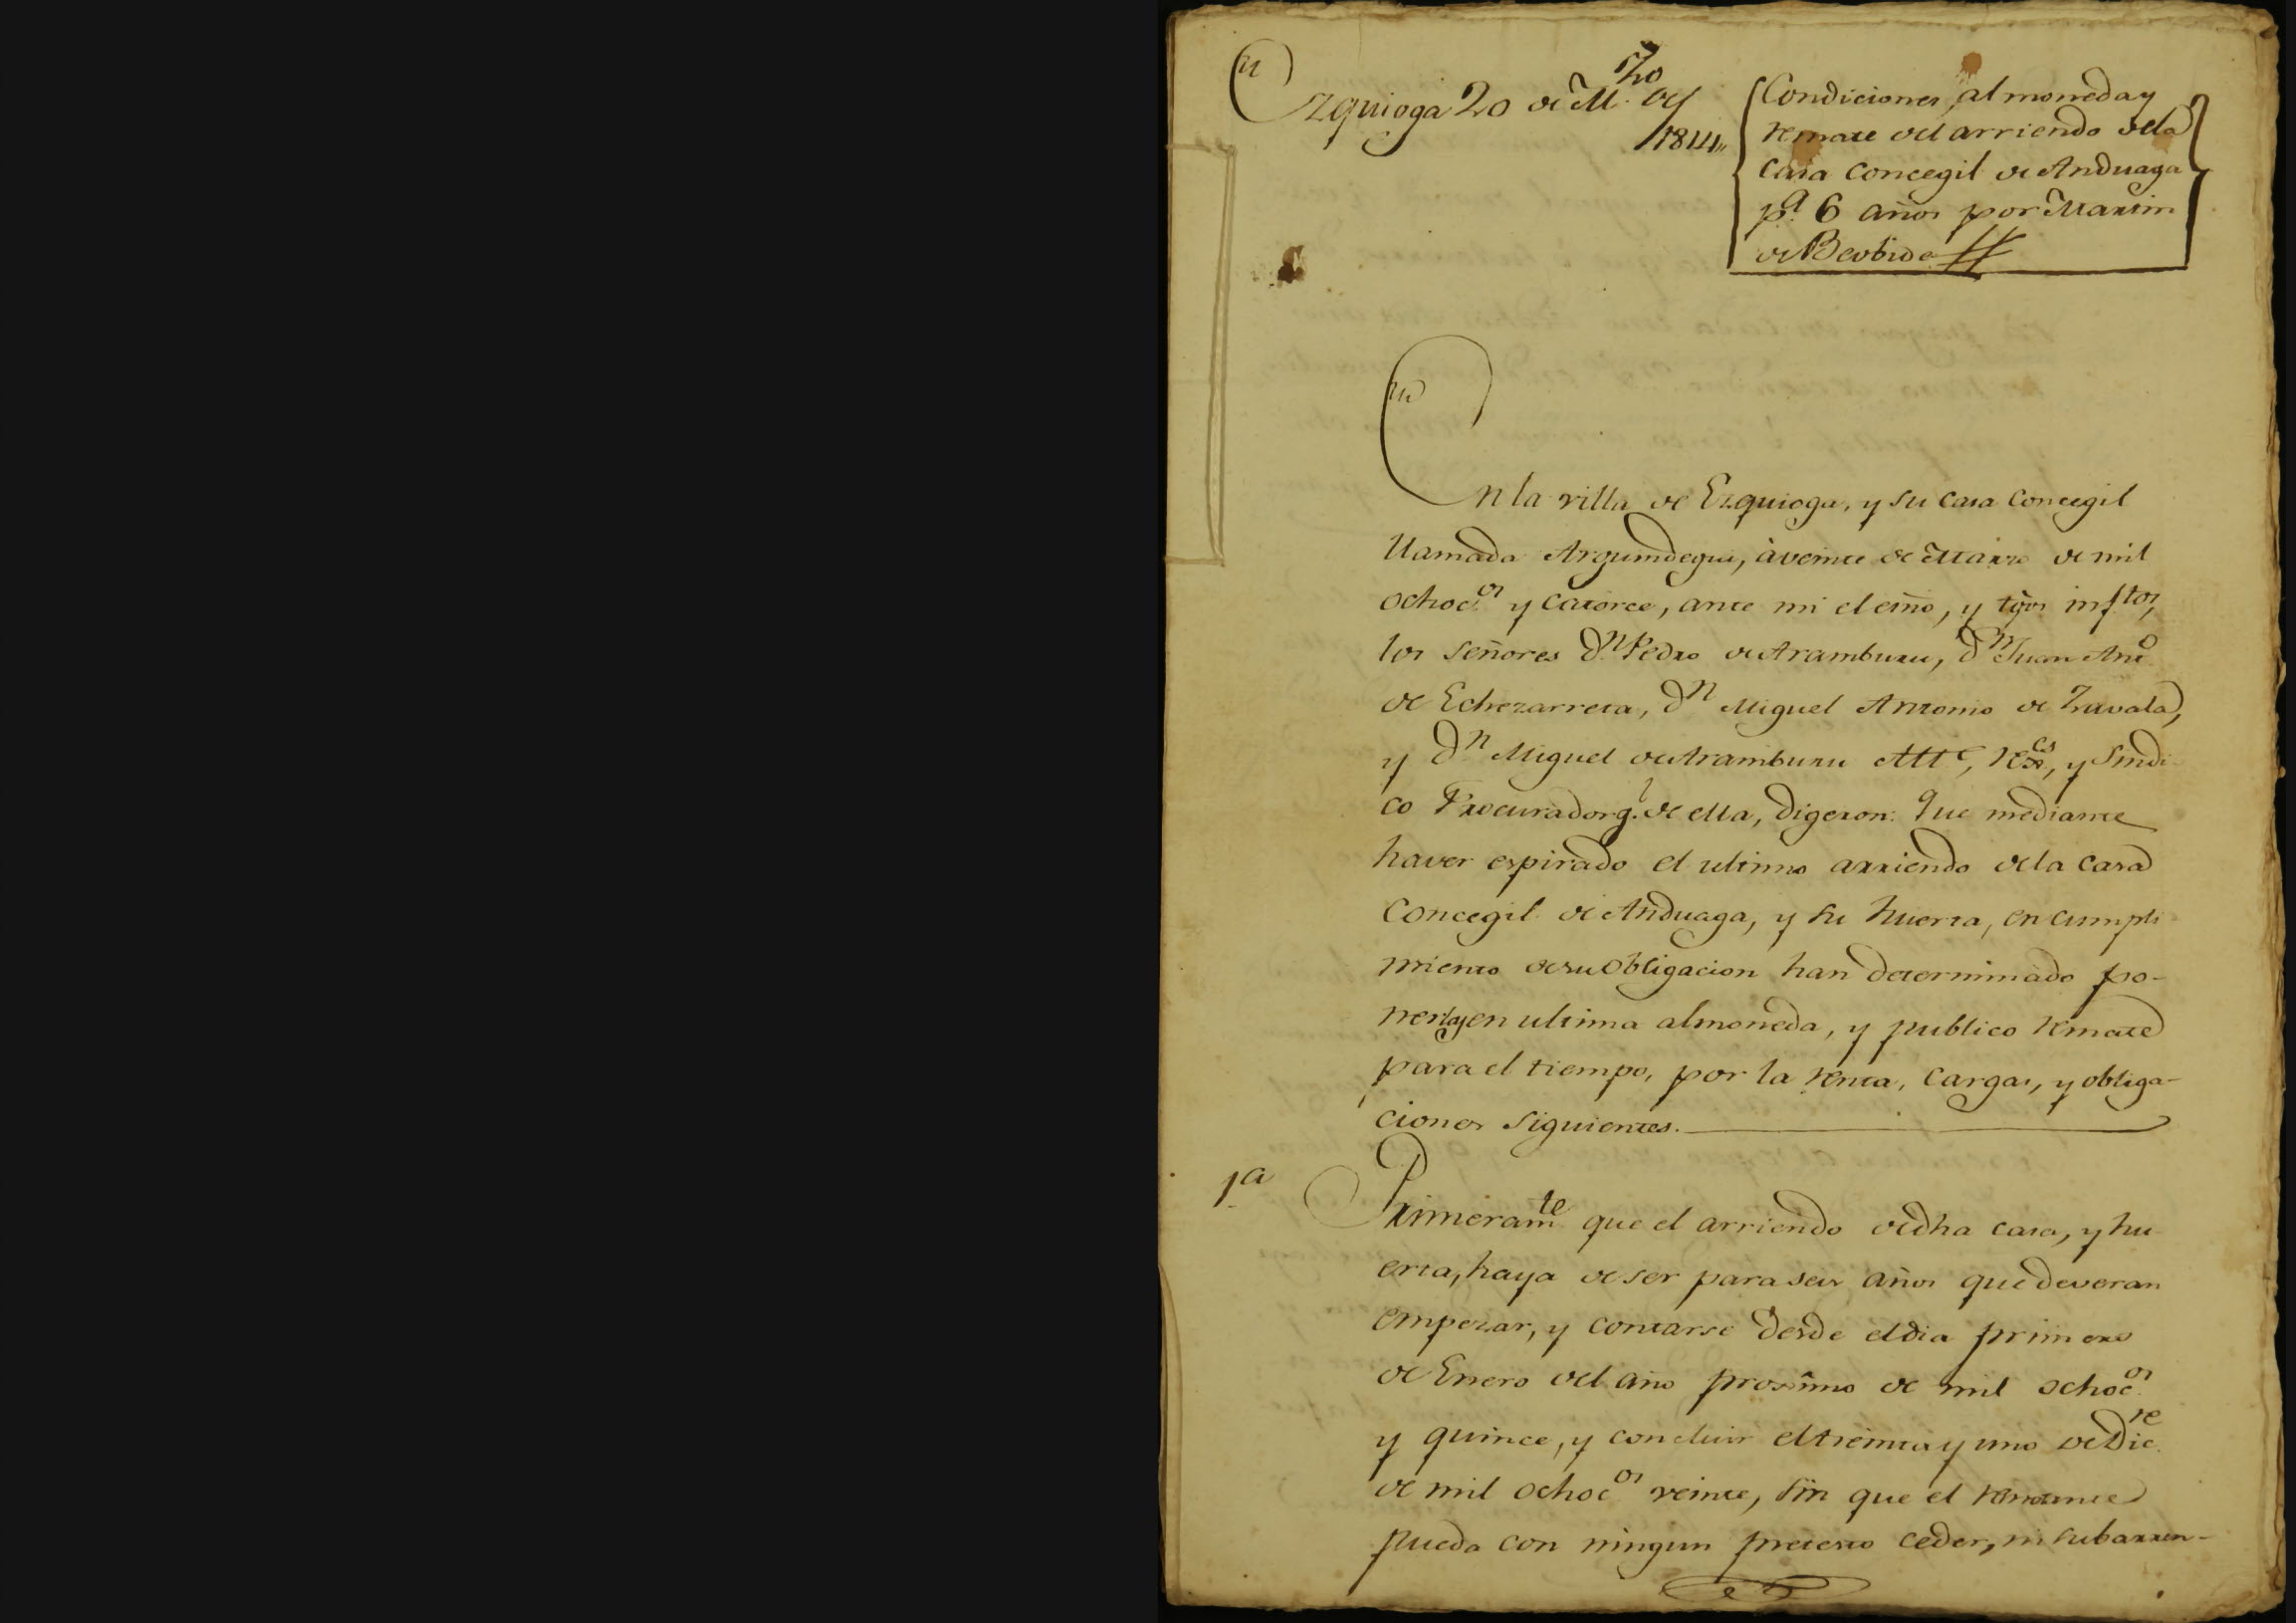 Ezquioga 20 de M.zo de
1814,,
Condiciones, almoneda y
remate del arriendo dela
Casa Concegil de Anduaga
p.a 6 años por Martin
de Beobide
En la villa de Ezquioga, y su casa Concegil
llamada Argumdegui, à veinte de Marzo de mil
ochoc.os y catorce, ante mi el esño, y tgos inf.tos,
los señores d.n Pedro de Aramburu, d.n Juan Ant.o
de Echezarreta, d.n Miguel Antonio de Zavala,
y d.n Miguel de Aramburu Alc.e, Rex.es, y Sindi
co Procurador g.l de ella, digeron: Que mediante
haver espirado el ultimo arriendo dela casa
Concegil de Anduaga, y su huerta, en cumpli
miento desu obligacion han determinado po-
nerlas en ultima almoneda, y publico remate
para el tiempo, por la renta, cargas, y obliga-
ciones siguientes.
1.a
Primeram.te que el arriendo de dha casa, y hu
erta, haya de ser para seis años que deveran
empezar, y contarse desde el dia primero
de Enero del año prosimo de mil ochoc.os
y quince, y concluir el treinta y uno de Dic.re
de mil ochoc.os veinte, sin que el rematante
pueda con ningun pretesto ceder, ni subarren-